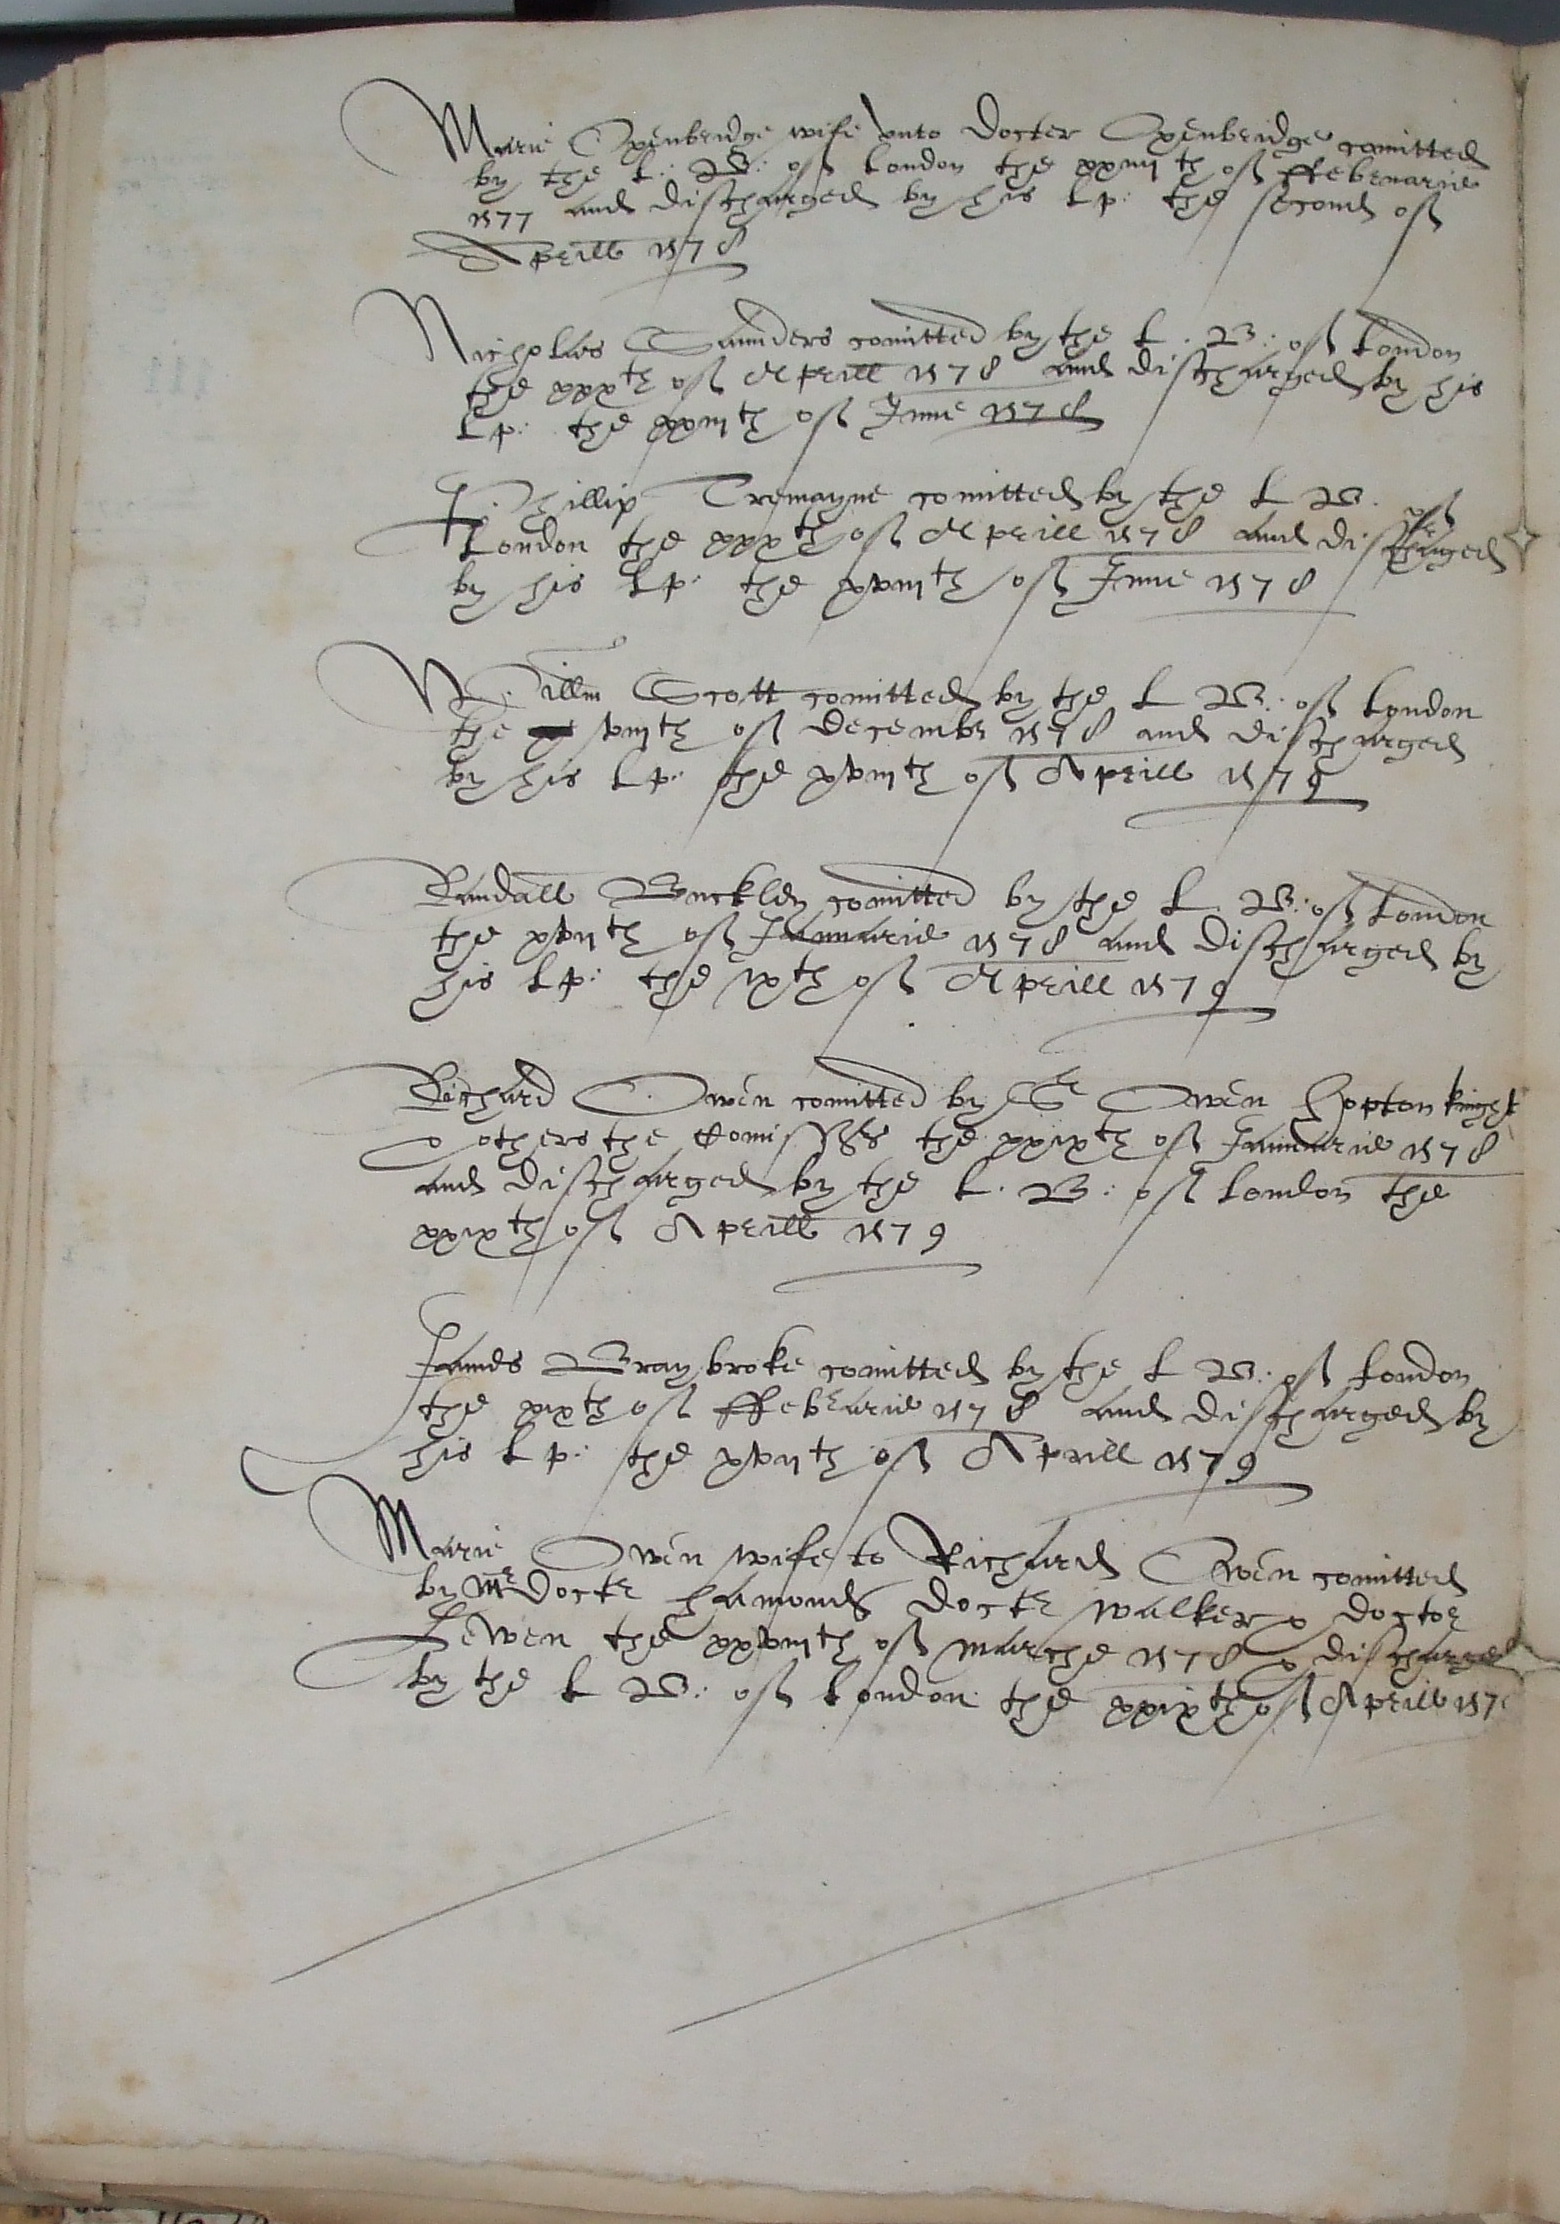 Marie Oxenbridge wife vnto Docter Oxenbridge comitted
by the L: B: of London the xxiiijth of ffebruarie
1577 and discharged by his Lp: the second of
Aprill 1578
Nicholas Saunders comitted by the L. B: of London
the xxxth of Aprill 1578 and discharged by his
Lp: the of June 1578
Phillip Tremayne comitted by the L B. of
London the xxxth of Aprill 1578 and discharged
by his Lp: the xviijth of June 1578
Willm Scott comitted by the L B: of London
the viijth of Decembr 1578 and discharged
by his Lp: the xviijth of Aprill 1579
Randall Buckley comitted by the L. B: of London
the xvijth of Januarie 1578 and discharged by
his Lp: the ixth of Aprill 1579
Richard Owen comitted by Sr Owen Hopton knight
& others the Comissrs the xxixth of Januarie 1578
and discharged by the L. B: of London the
xxixth of Aprill 1579
James Braybroke comitted by the L B: of London
the xixth of ffebrarie 1578 and discharged by
his Lp: the xvijth of Aprill 1579
Marie Owen wife to Richard Owen comitted
by Mr Doctr Hamond Doctr Walker & Doctor
Lewen the xxviijth of Marche 1578 & discharged
by the L B: of London the xxixth of Aprill 157